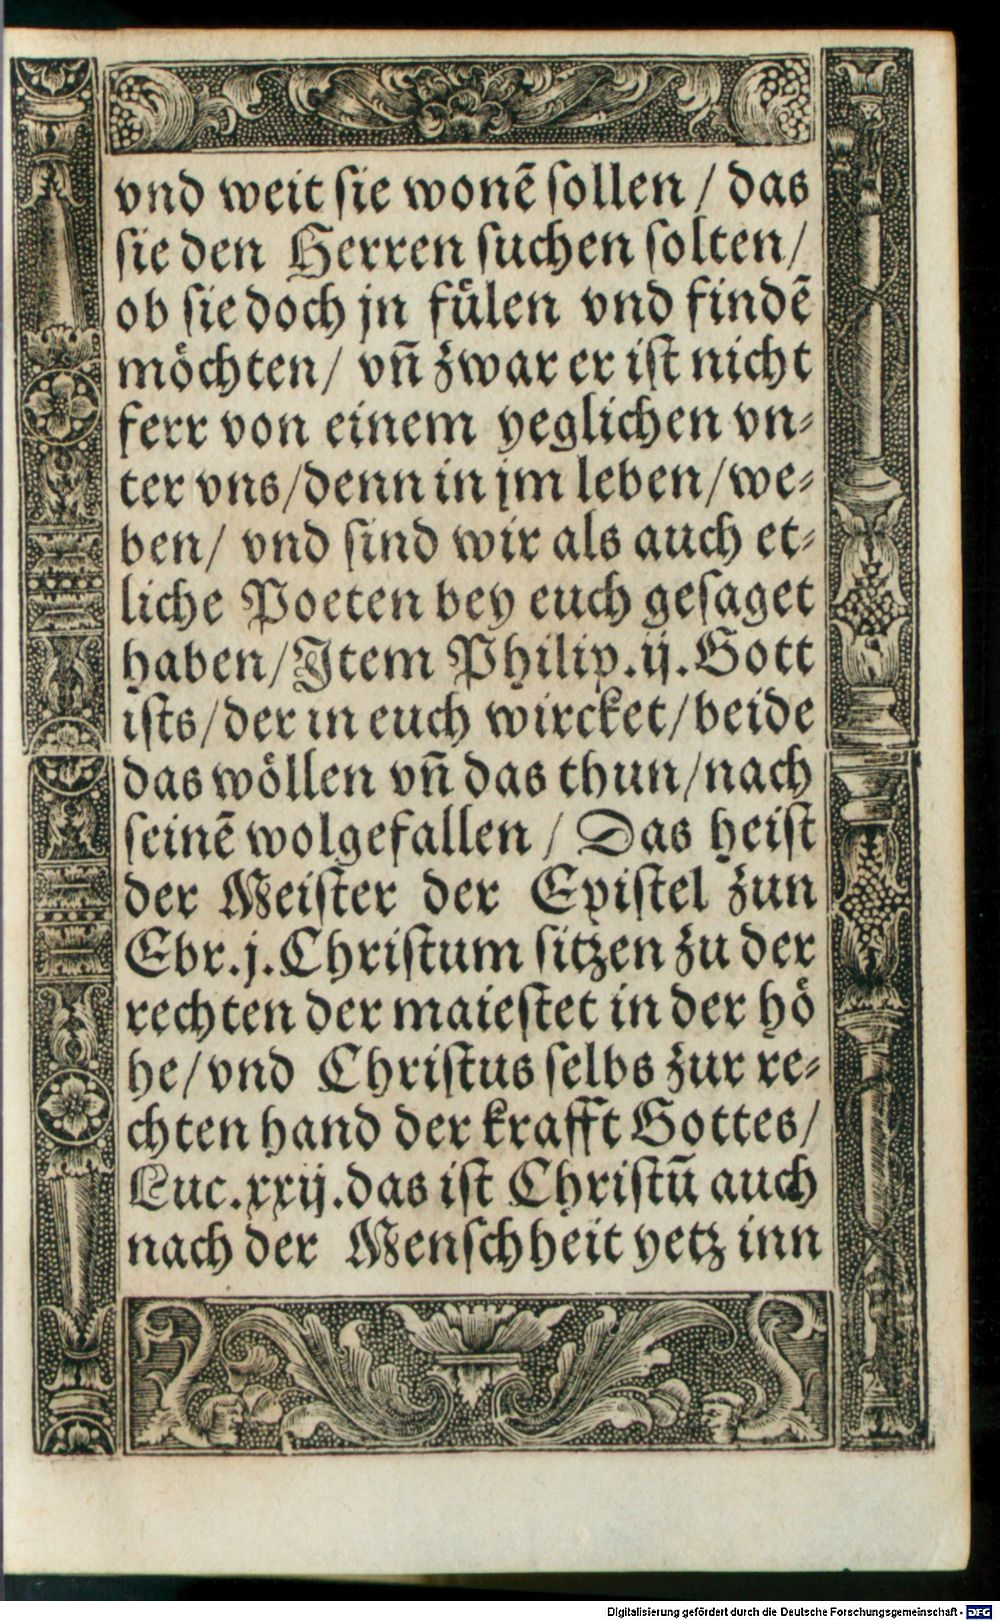 vnd weit ſie wonẽ ſollen / das
ſie den Herren ſuchen ſolten/
ob ſie doch jn fuͤlen vnd findẽ
moͤchten/ vn̄ zwar er iſt nicht
ferr von einem yeglichen vn⸗
ter vns/denn in jm leben/we⸗
ben/ vnd ſind wir als auch et⸗
liche Poeten bey euch geſaget
haben/Jtem Philip.ij.Gott
iſts/der in euch wircket/beide
das woͤllen vn̄ das thun/nach
ſeinẽ wolgefallen / Das heiſt
der Meiſter der Epiſtel zun
Ebr.j.Chriſtum ſitzen zu der
rechten der maieſtet in der hoͤ
he/vnd Chriſtus ſelbs zur re⸗
chten hand der krafft Gottes/
Luc.xxij.das iſt Chriſtū auch
nach der Menſchheit yetz inn
Digitalisierung gefördert durch die Deutsche Forschungsgemeinschaft - DFG